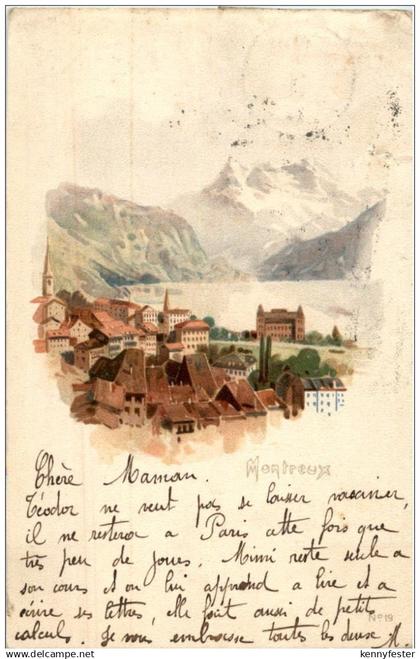 Montreux
Chère Maman.
Téodor ne veut pas se laisser vacciner,
il ne restera a Paris cette fois que
très peu de jours. Mimi reste seule a
son cours et on lui apprend a lire et a
écrire ses lettres, elle fait aussi de petits
No 19
calculs. Je vous embrasse toutes les deux M.
www.delcampe.net
kennyfester